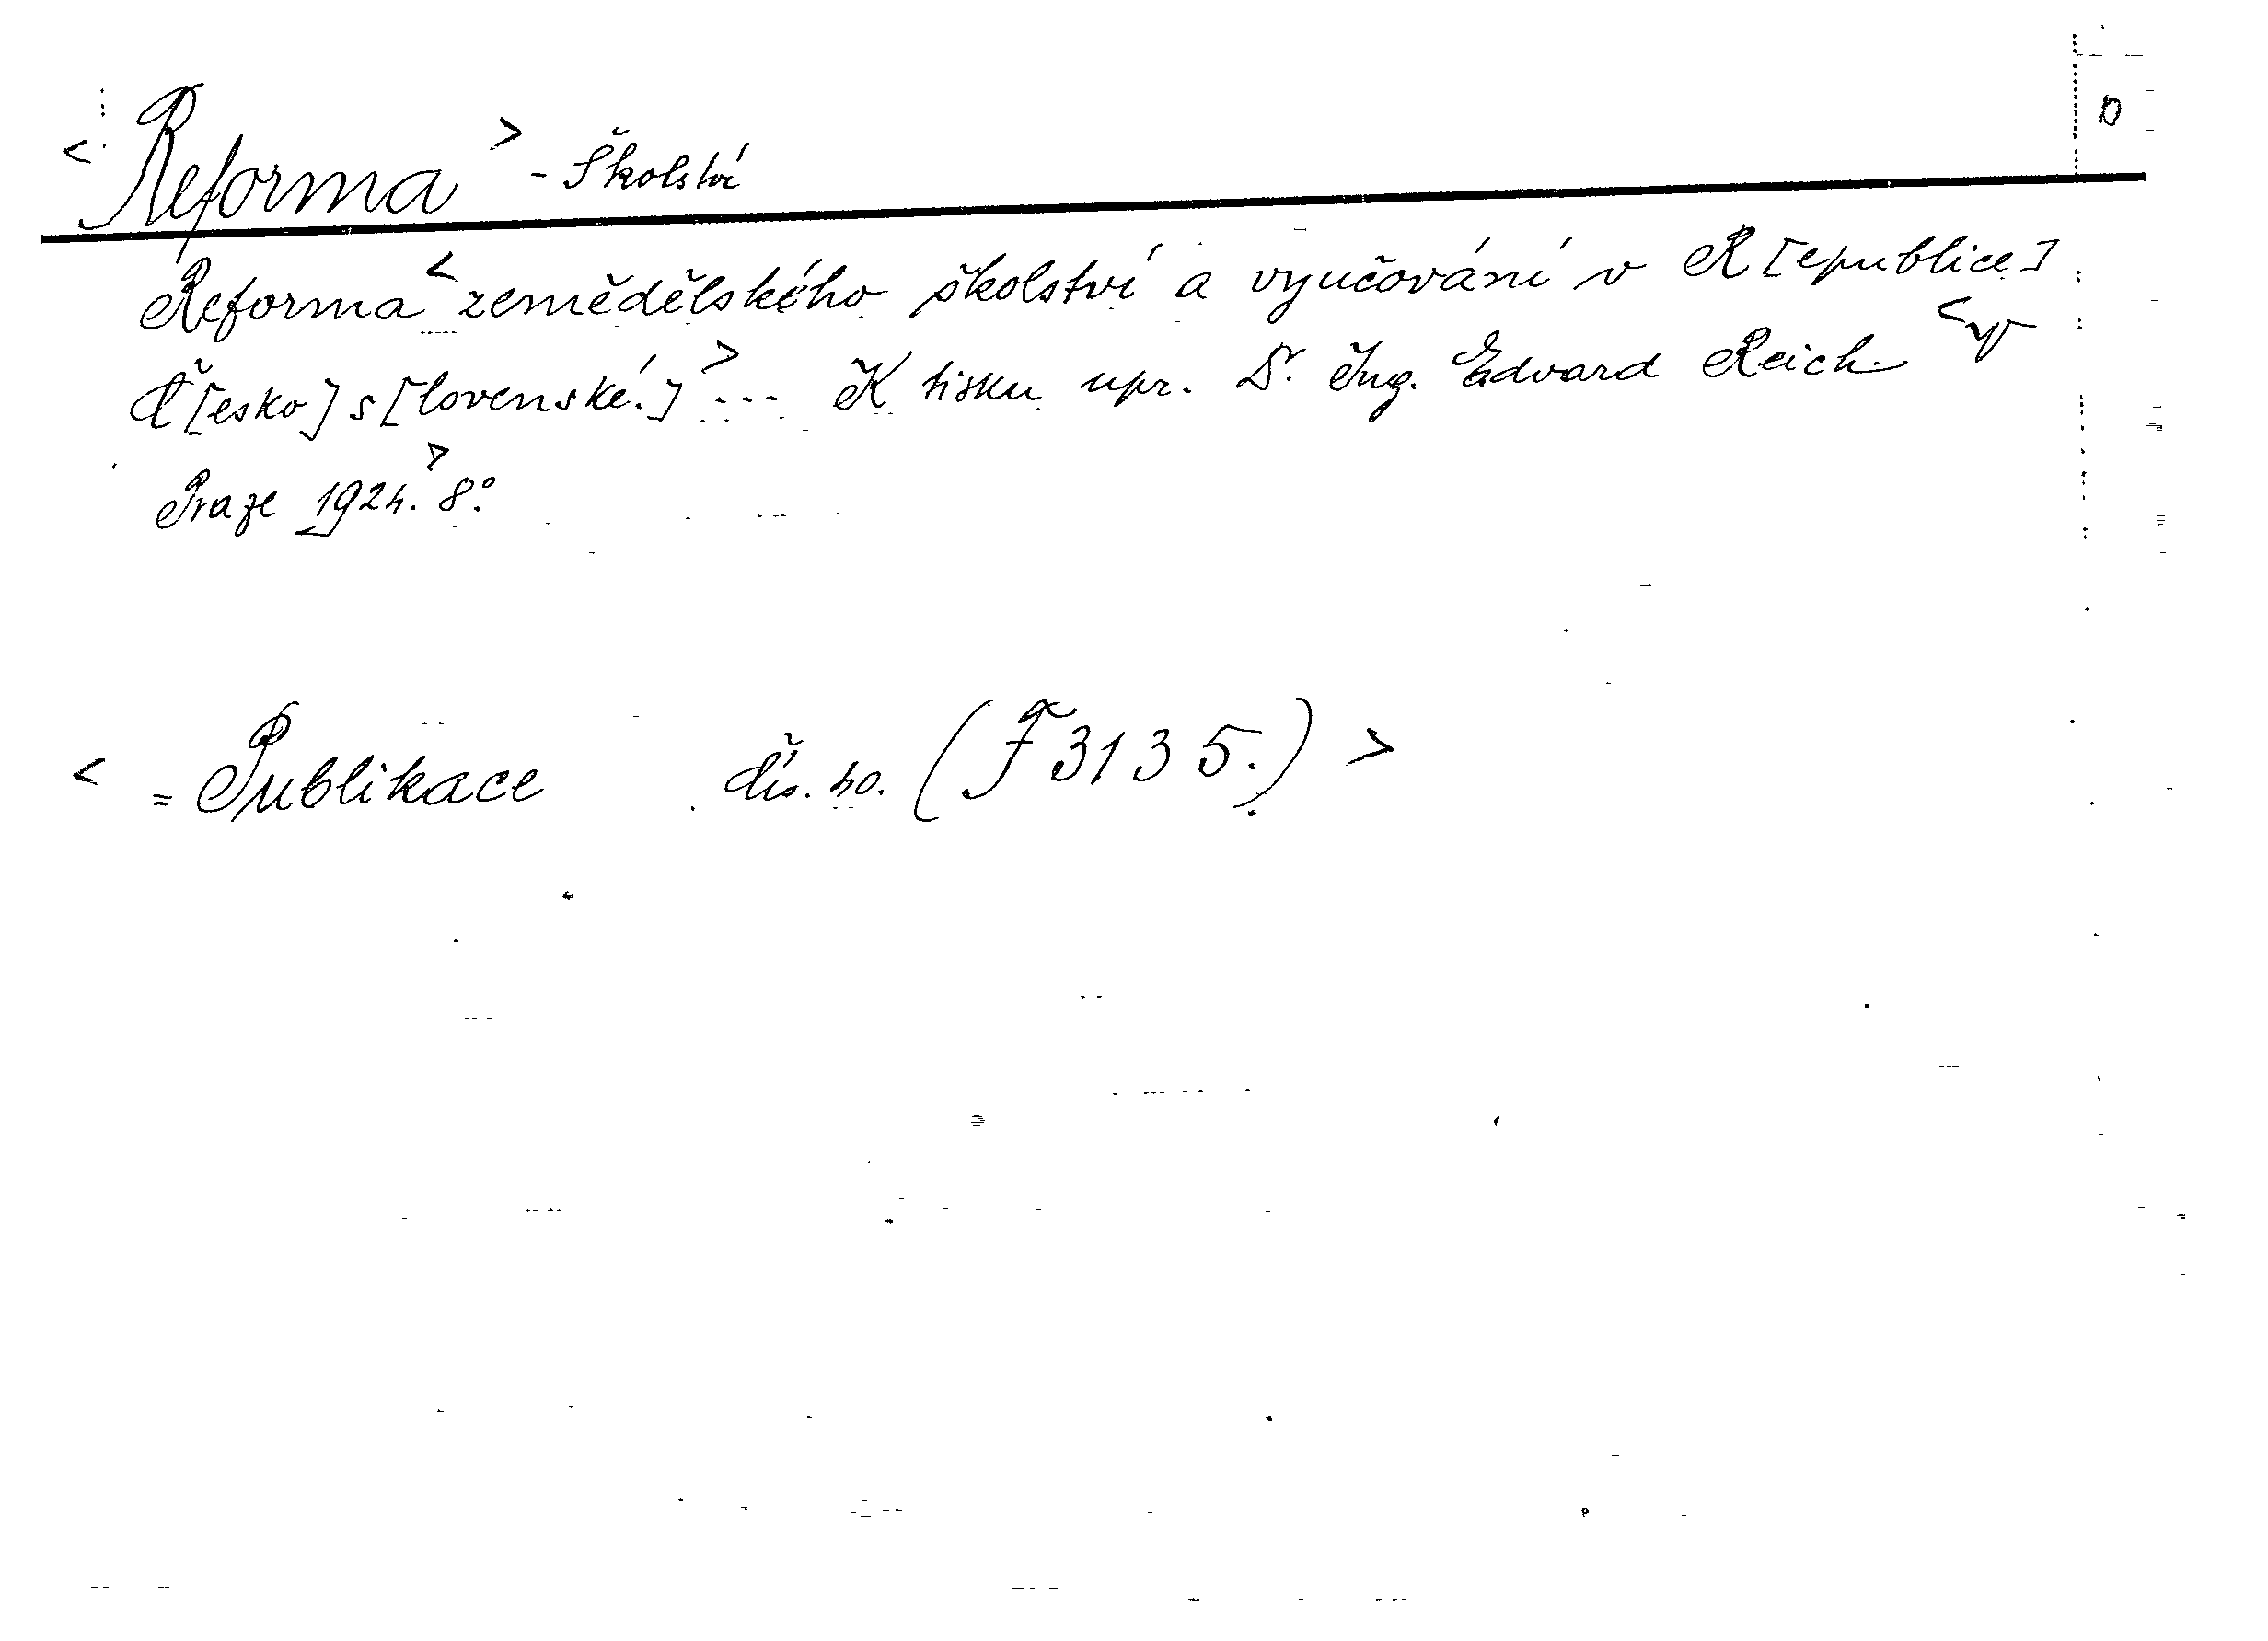 < Reforma > - Školství D
Reforma < zemědělského školství a vyučování v R[epublice]
Č[esko]s[lovenské.] > ... K tisku upr. Dr. Ing. Edvard Reich < V
Praze 1924. > 8°.
< = Publikace čís. 40. (F 3135.) >